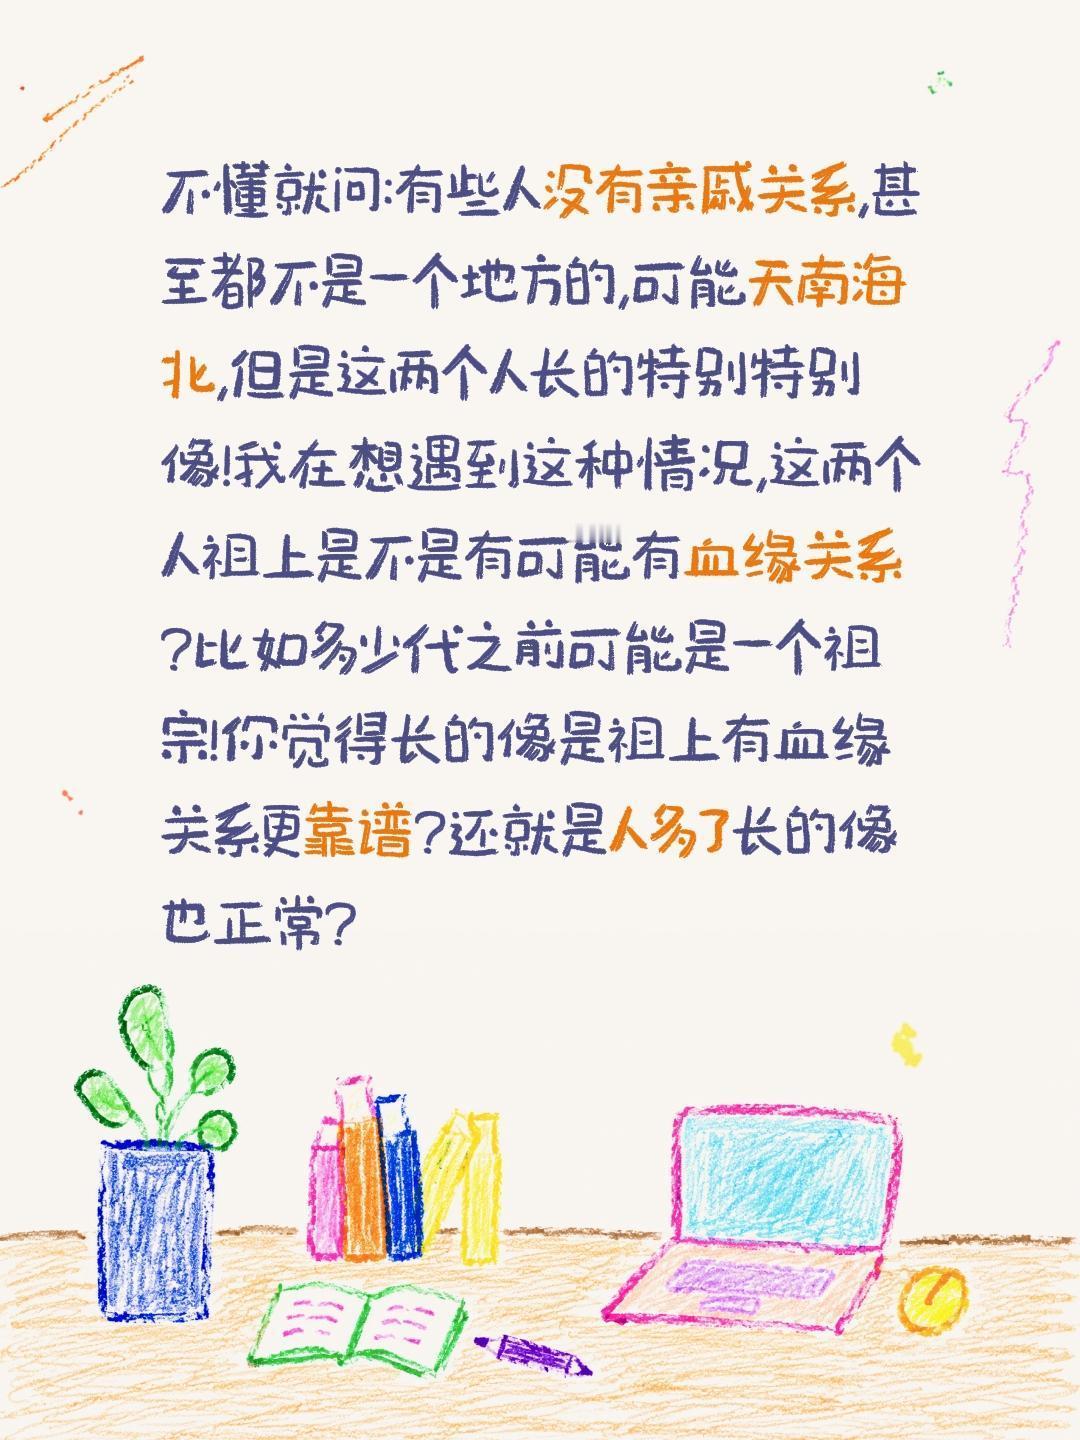 不懂就问:有些人没有亲戚关系,甚
至都不是一个地方的,可能天南海
北,但是这两个人长的特别特别
像!我在想遇到这种情况,这两个
人祖上是不是有可能有血缘关系
?比如多少代之前可能是一个祖
宗!你觉得长的像是祖上有血缘
关系更靠谱?还就是人多了长的像
也正常?